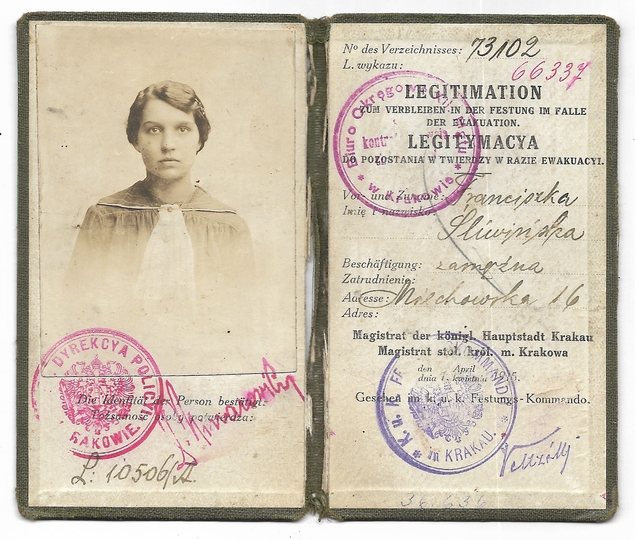 DYREKCYA POLI
KRAKOWIE
Die Identität der Person bestätigt:
Tożsamość osoby potwierdza:
L: 10506/A.
Nº des Verzeichnisses: 73,102
L. wykazu: 66337
LEGITIMATION
ZUM VERBLEIBEN IN DER FESTUNG IM FALLE
DER EVAKUATION.
LEGITYMACYA
DO POZOSTANIA W TWIERDZY W RAZIE EWAKUACYI.
Biuro Okręgo
w Krakowie
Vor- und Zuname: Franciszka
Imię i nazwisko: Śliwińska
Beschäftigung: zamężna
Zatrudnienie:
Adresse: Miechowska 16
Adres:
Magistrat der königl. Hauptstadt Krakau
Magistrat stoł. król. m. Krakowa
den April
dnia kwietnia 5.
Gesehen im k. u. k. Festungs-Kommando.
K. u. K.
in KRAKAU